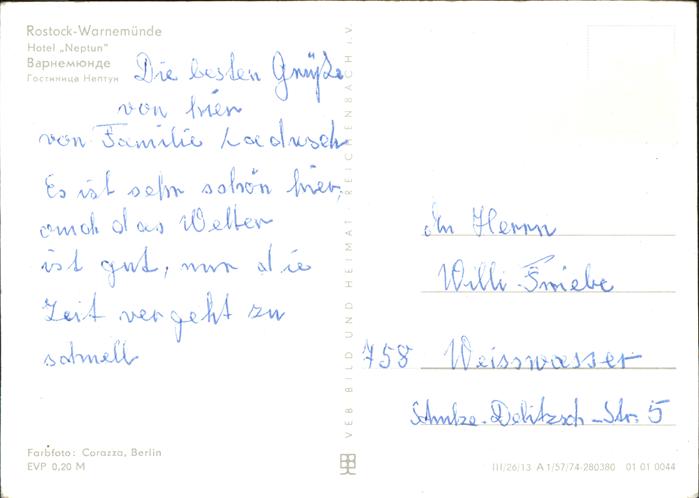 Rostock-Warnemünde
Hotel „Neptun"
Варнемюнде
Гостиница Нептун
Die besten Grüße
von hier
von Familie Ladusch
Es ist sehr schön hier,
auch das Wetter
ist gut, nur die
Zeit vergeht zu
schnell
Farbfoto: Corazza, Berlin
EVP 0,20 M
VEB BILD UND HEIMAT REICHENBACH i. V
An Herrn
Willi Friebe
758 Weisswasser
Schulze-Delitzsch-Str. 5
III/26/13 A 1/57/74 280380 01 01 0044